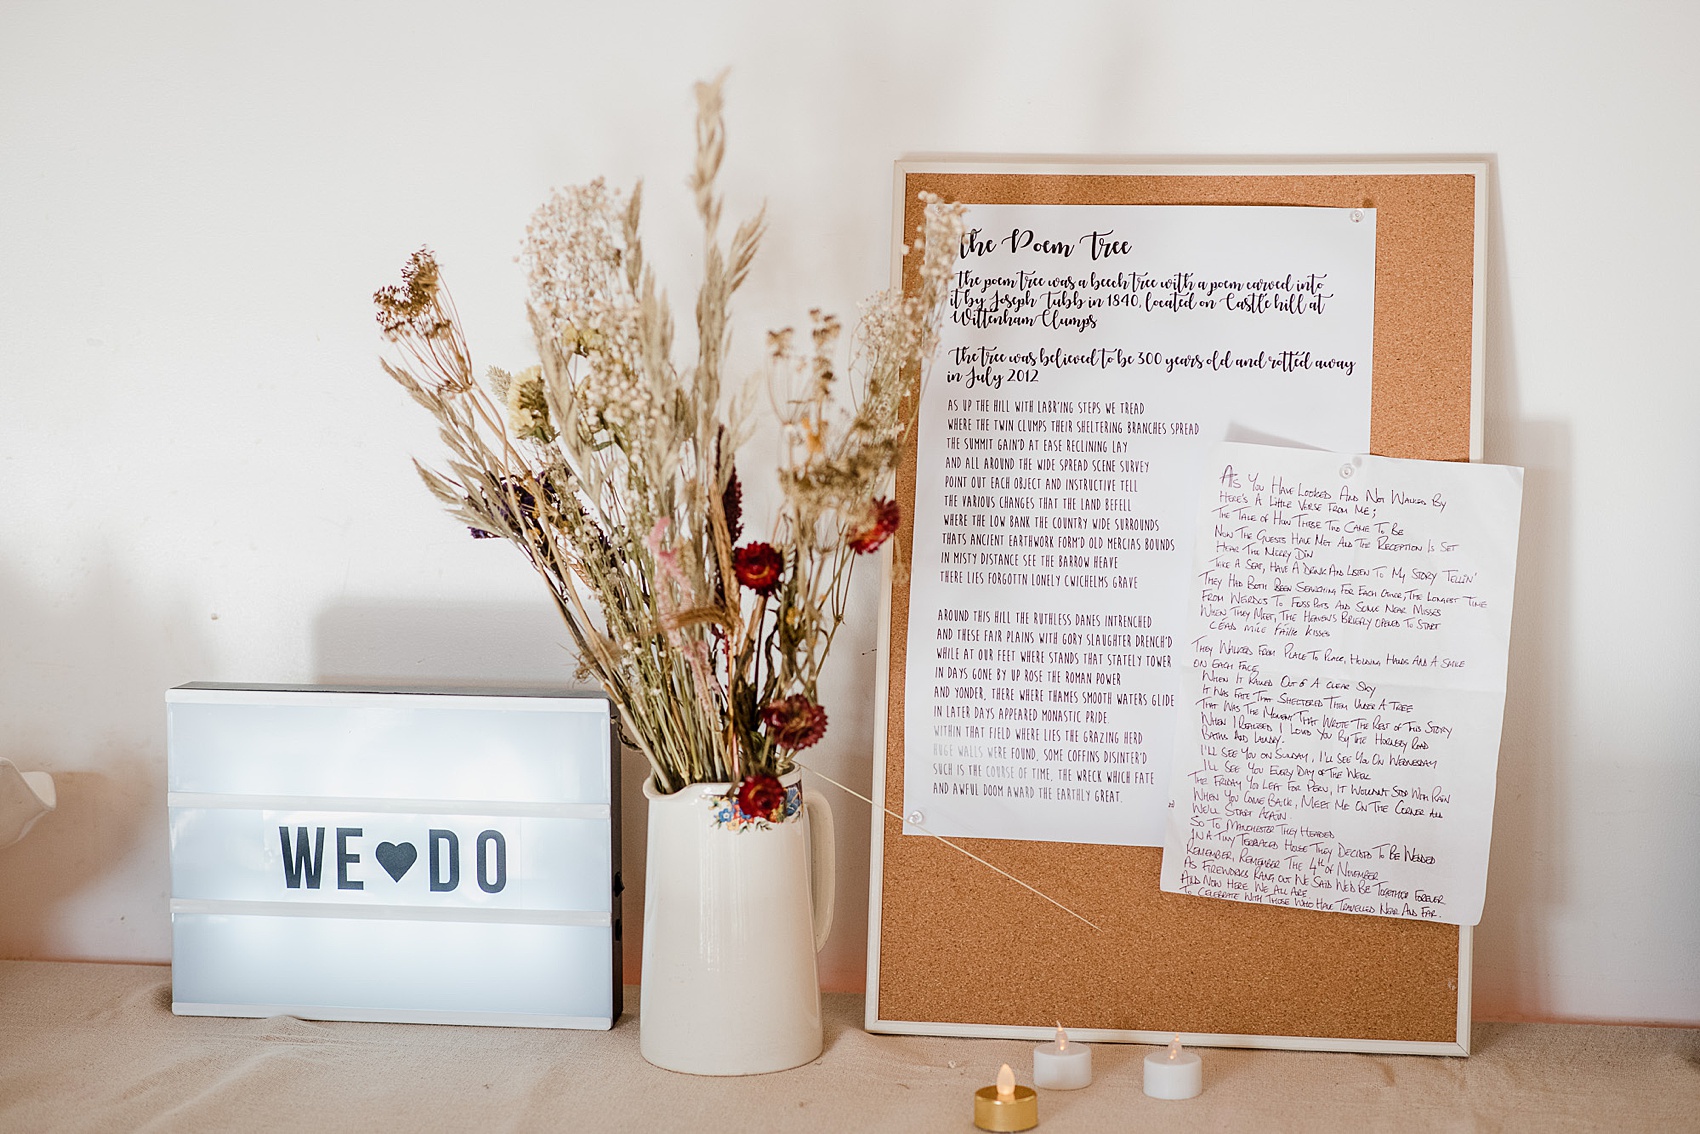 WE♥DO
The Poem Tree
The poem tree was a beech tree with a poem carved into
it by Joseph Tubb in 1840, located on Castle hill at
Wittenham Clumps
The tree was believed to be 300 years old and rotted away
in July 2012
AS UP THE HILL WITH LABR'ING STEPS WE TREAD
WHERE THE TWIN CLUMPS THEIR SHELTERING BRANCHES SPREAD
THE SUMMIT GAIN'D AT EASE RECLINING LAY
AND ALL AROUND THE WIDE SPREAD SCENE SURVEY
POINT OUT EACH OBJECT AND INSTRUCTIVE TELL
THE VARIOUS CHANGES THAT THE LAND BEFELL
WHERE THE LOW BANK THE COUNTRY WIDE SURROUNDS
THATS ANCIENT EARTHWORK FORM'D OLD MERCIAS BOUNDS
IN MISTY DISTANCE SEE THE BARROW HEAVE
THERE LIES FORGOTTN LONELY CWICHELMS GRAVE
AROUND THIS HILL THE RUTHLESS DANES INTRENCHED
AND THESE FAIR PLAINS WITH GORY SLAUGHTER DRENCH'D
WHILE AT OUR FEET WHERE STANDS THAT STATELY TOWER
IN DAYS GONE BY UP ROSE THE ROMAN POWER
AND YONDER, THERE WHERE THAMES SMOOTH WATERS GLIDE
IN LATER DAYS APPEARED MONASTIC PRIDE.
WITHIN THAT FIELD WHERE LIES THE GRAZING HERD
HUGE WALLS WERE FOUND, SOME COFFINS DISINTER'D
SUCH IS THE COURSE OF TIME, THE WRECK WHICH FATE
AND AWFUL DOOM AWARD THE EARTHLY GREAT.
As You Have Looked And Not Walked By
Here's A Little Verse From Me;
The Tale of How These Two Came To Be
Now The Guests Have Met And The Reception Is Set
Hear The Merry Din
Take A Seat, Have A Drink And Listen To My Story Tellin'
They Had Both Been Searching For Each Other, The Longest Time
From Weirdos To Fusspots And Some Near Misses
When They Meet, The Heaven's Briefly Opened To Start
Céad mile fáilte Kisses
They Walked From Place To Place, Holding Hands And A Smile
on Each Face,
When It Rained Out of A Clear Sky
It Was Fate That Sheltered Them Under A Tree
That Was The Moment That Wrote The Rest of This Story
When I Realised I Loved You By The Hornsey Road
Baths And Laundry.
I'll See You on Sunday, I'll See You On Wednesday
I'll See You Every Day of The Week
The Friday You Left For Peru, It Wouldn't Stop With Rain
When You Come Back, Meet Me On The Corner And
We'll Start Again.
So To Manchester They Headed
In A Tiny Terraced House They Decided To Be Wedded
Remember, Remember The 4th of November
As Fireworks Rang out We Said We'd Be Together Forever
And Now Here We All Are
To Celebrate With Those Who Have Travelled Near And Far.